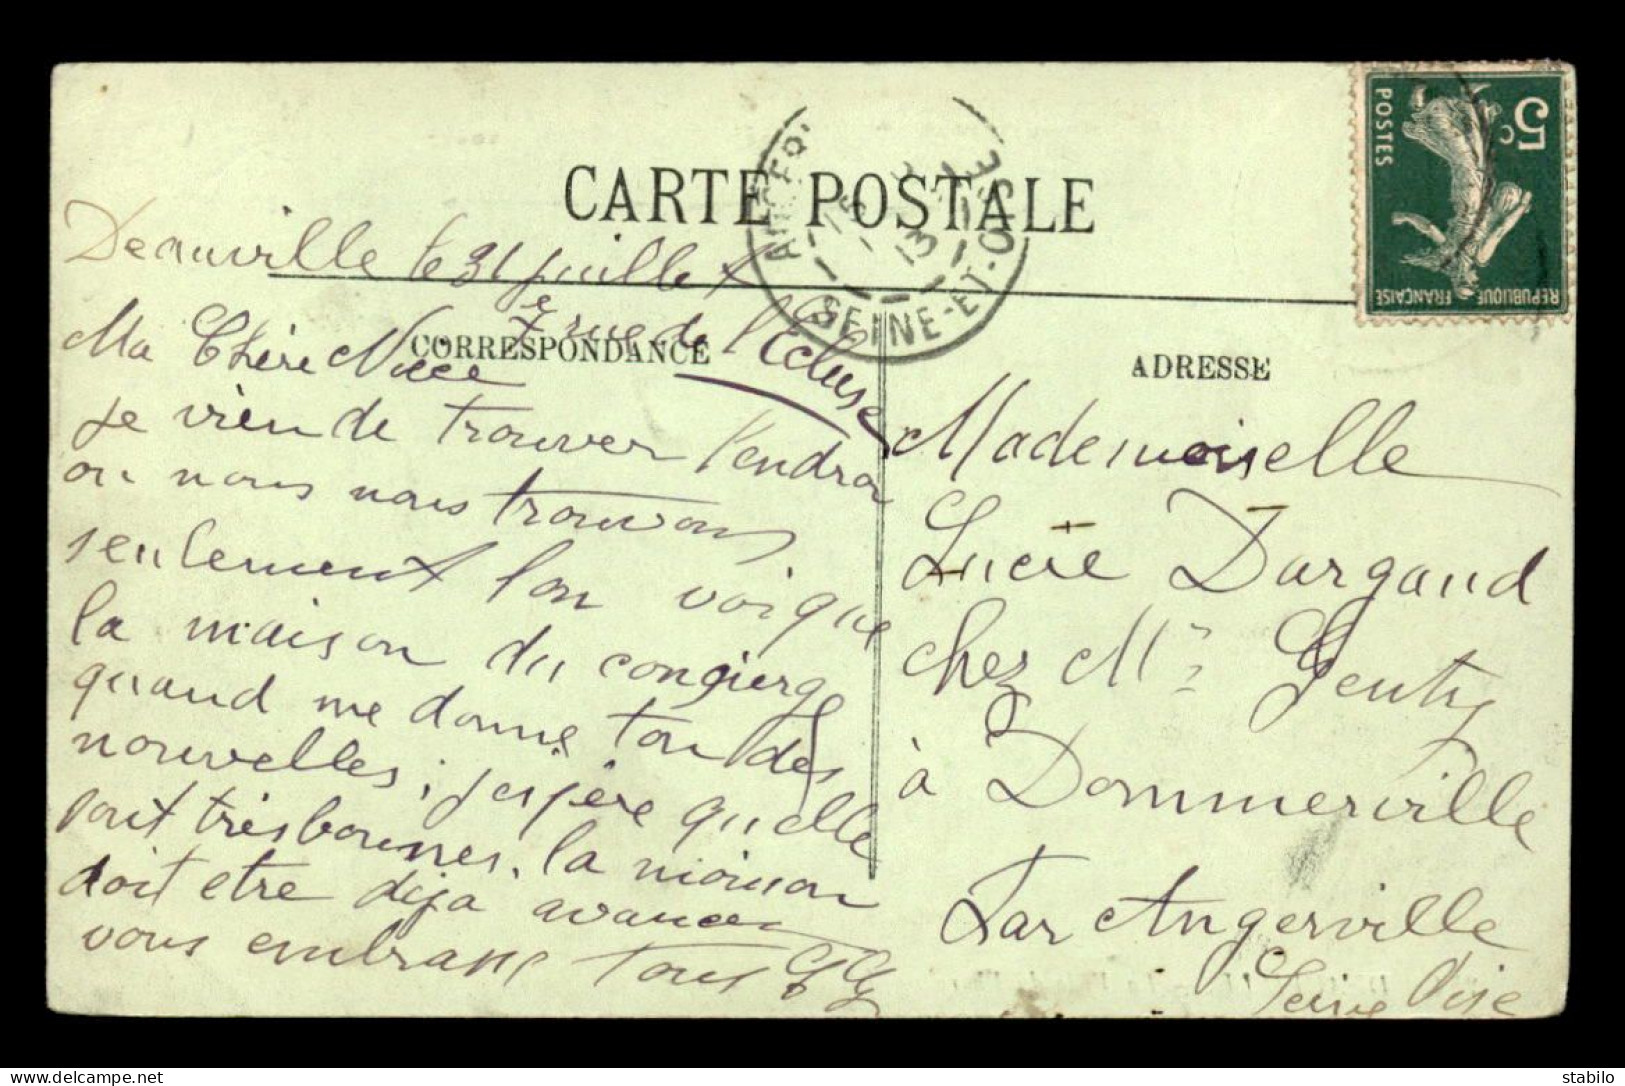 CARTE POSTALE
CORRESPONDANCE
ADRESSE
Deauville le 31 juillet
7 rue de l'Ecluse
Ma Chère Niece
je vien de trouver l'endroi
ou nous nous trouvons
seulement l'on voi que
la maison du congierge
quand me donne ton des
nouvelles, j'espère qu'elle
sont très bonnes, la moison
doit etre deja avancer
vous embrasse tous
Mademoiselle
Lucie Dargaud
chez Mr Genty
à Dommerville
Par Angerville
Seine Oise
SEINE-ET-OISE
13
5c
POSTES
REPUBLIQUE FRANÇAISE
delcampe.net
stabilo